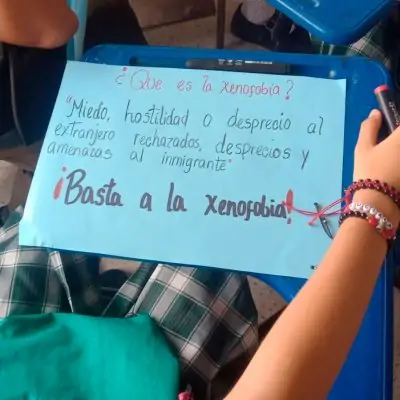 ¿Que es la xenofobia?
"Miedo, hostilidad o desprecio al
extranjero rechazados, desprecios y
amenazas al inmigrante"
¡Basta a la xenofobia!